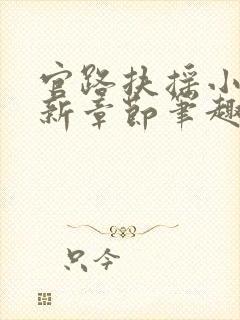 官路扶摇小
新章节笔趣
只今